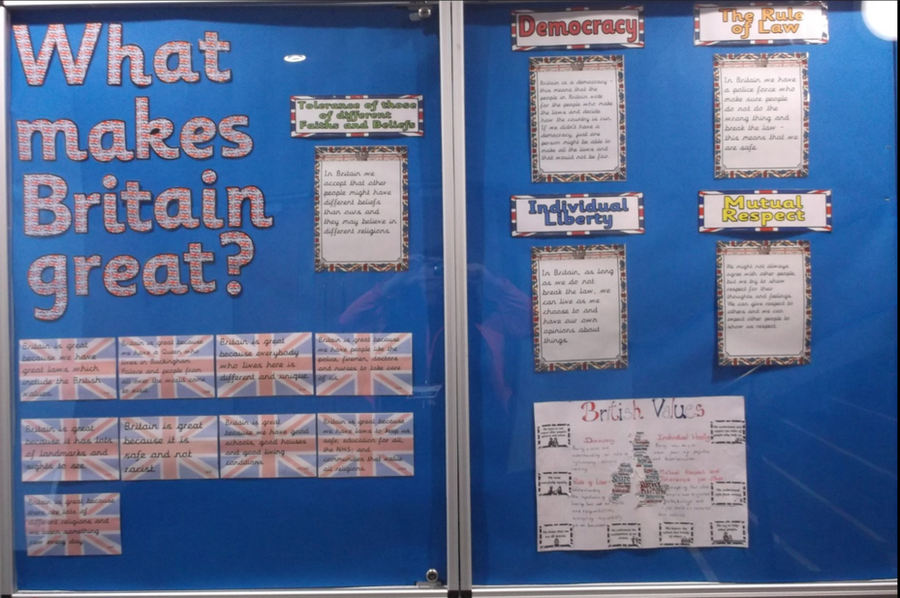 What
makes
Britain
great?
Tolerance of those
of different
Faiths and Beliefs
In Britain we
accept that other
people might have
different beliefs
than ours and
they may believe in
different religions.
Britain is great
because we have
great laws which
include the British
values.
Britain is great because
we have a Queen who
lives in Buckingham
Palace and people from
all over the world come
to visit.
Britain is great
because everybody
who lives here is
different and unique.
Britain is great because
we have people like the
police, firemen, doctors
and nurses to take care
of us.
Britain is great
because it has lots
of landmarks and
sights to see.
Britain is great
because it is
safe and not
racist.
Britain is great
because we have good
schools, good houses
and good living
conditions.
Britain is great because
we have laws to keep us
safe, education for all,
the NHS, and
communities that
all religions.
Britain is great because
there are lots of
different religions and
we learn something
every day.
Democracy
Britain is a democracy -
this means that the
people in Britain vote
for the people who make
the laws and decide
how the country is run.
If we didn't have a
democracy, just one
person might be able to
make all the laws and
that would not be fair.
The Rule
of Law
In Britain we have
a police force who
make sure people
do not do the
wrong thing and
break the law -
this means that we
are safe.
Individual
Liberty
In Britain, as long
as we do not
break the law, we
can live as we
choose to and
have our own
opinions about
things.
Mutual
Respect
We might not always
agree with other people,
but we try to show
respect for their
thoughts and feelings.
We can give respect to
others and we can
expect other people to
show us respect.
British Values
Democracy
Individual liberty
Rule of Law
Mutual Respect and